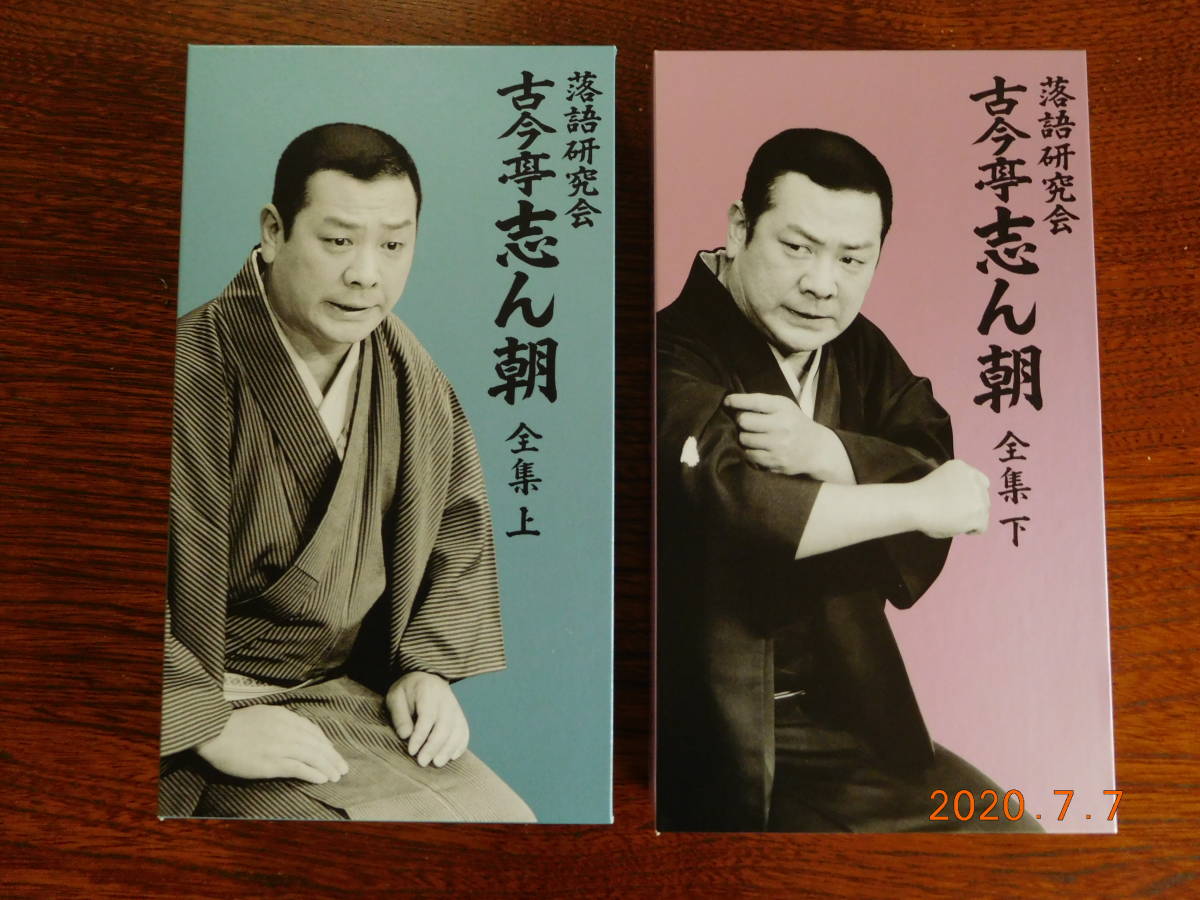 落語研究会
古今亭志ん朝 全集 上
落語研究会
古今亭志ん朝 全集 下
2020.7.7